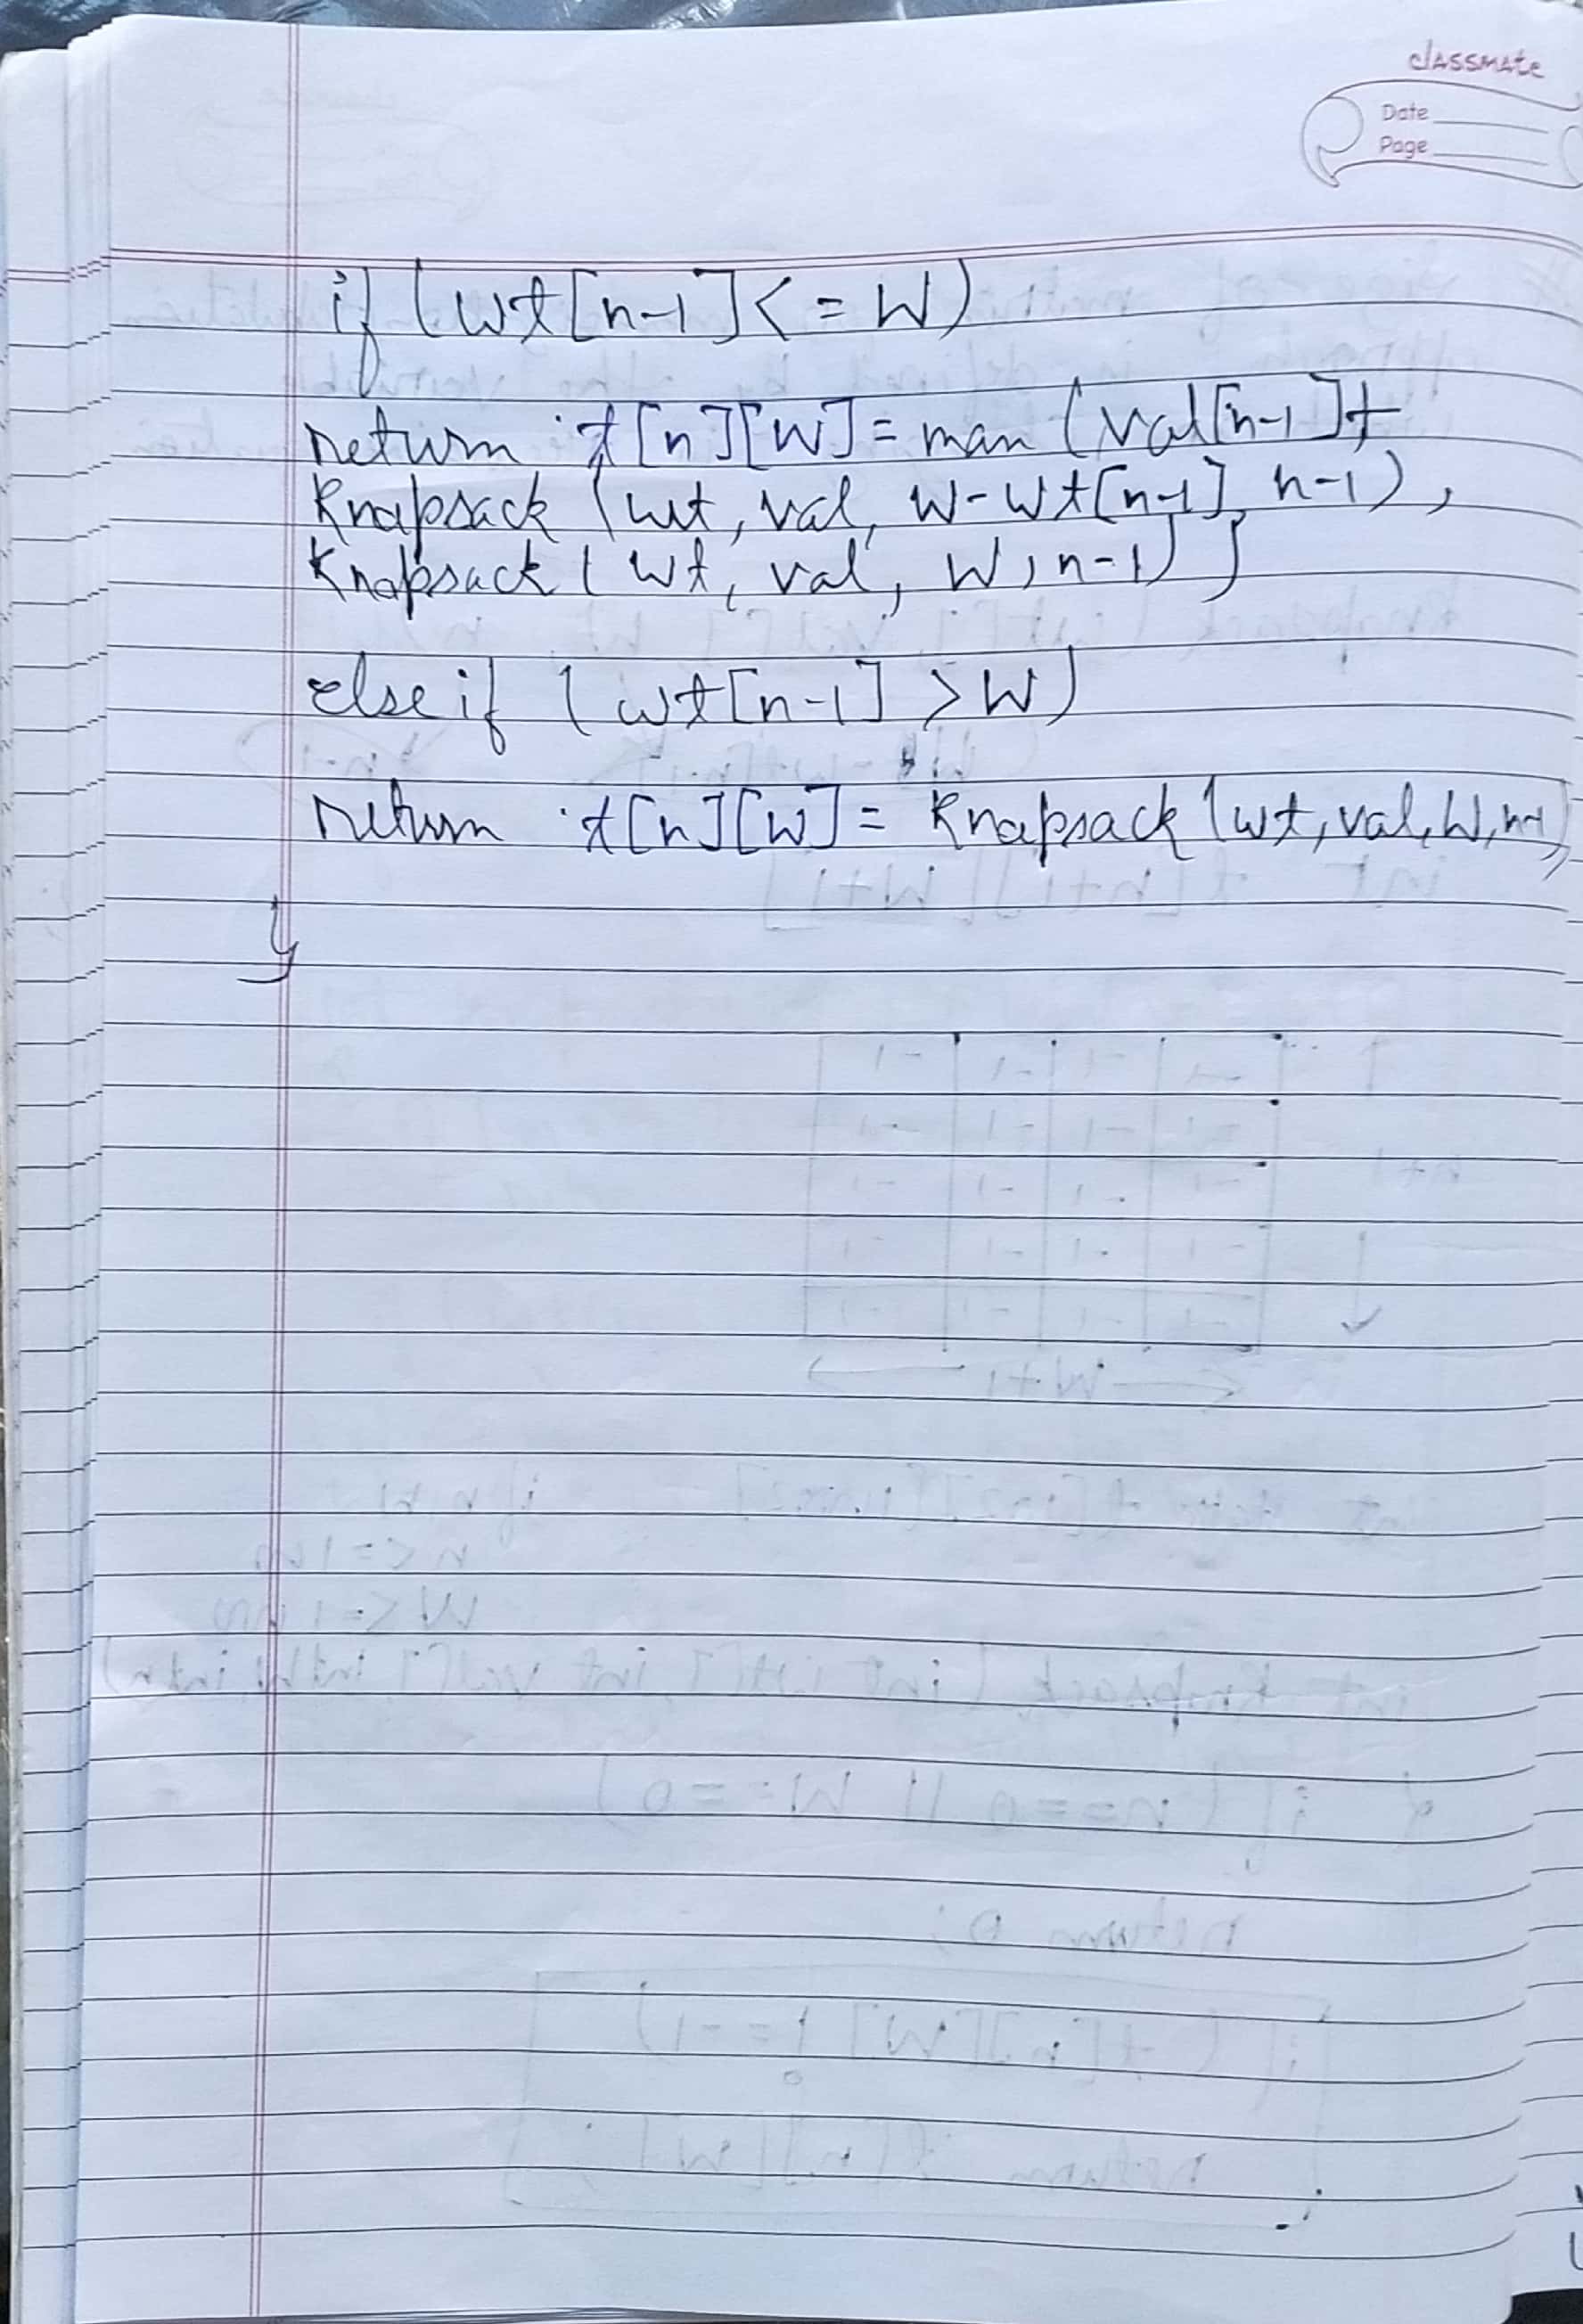 classmate
Date
Page
if (wt[n-1] <= W)
return t[n][W] = max (val[n-1] +
Knapsack (wt, val, W-wt[n-1], n-1),
Knapsack (wt, val, W, n-1));
else if (wt[n-1] > W)
return t[n][W] = Knapsack (wt, val, W, n-1);
}